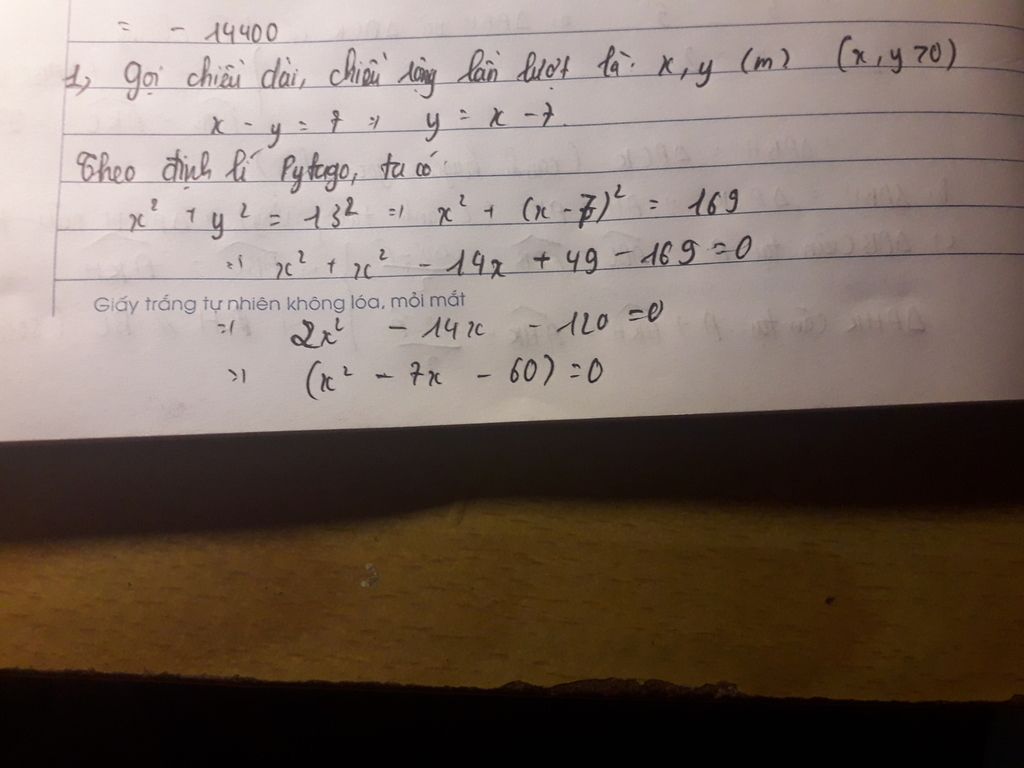 = - 14400
1, Gọi chiều dài, chiều rộng lần lượt là: x, y (m) (x, y > 0)
x - y = 7 => y = x - 7.
Theo định lí Pytago, ta có
x² + y² = 13² => x² + (x - 7)² = 169
=> x² + x² - 14x + 49 - 169 = 0
Giấy trắng tự nhiên không lóa, mỏi mắt
=> 2x² - 14x - 120 = 0
=> (x² - 7x - 60) = 0